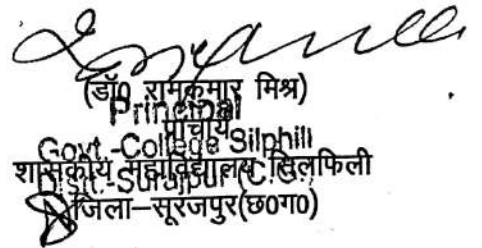 (डॉ0 रामकुमार मिश्र)
Principal
प्राचार्य
Govt.-College Silphili
शासकीय महाविद्यालय सिलफिली
Distt.-Surajpur C.G.
जिला–सूरजपुर(छ0ग0)